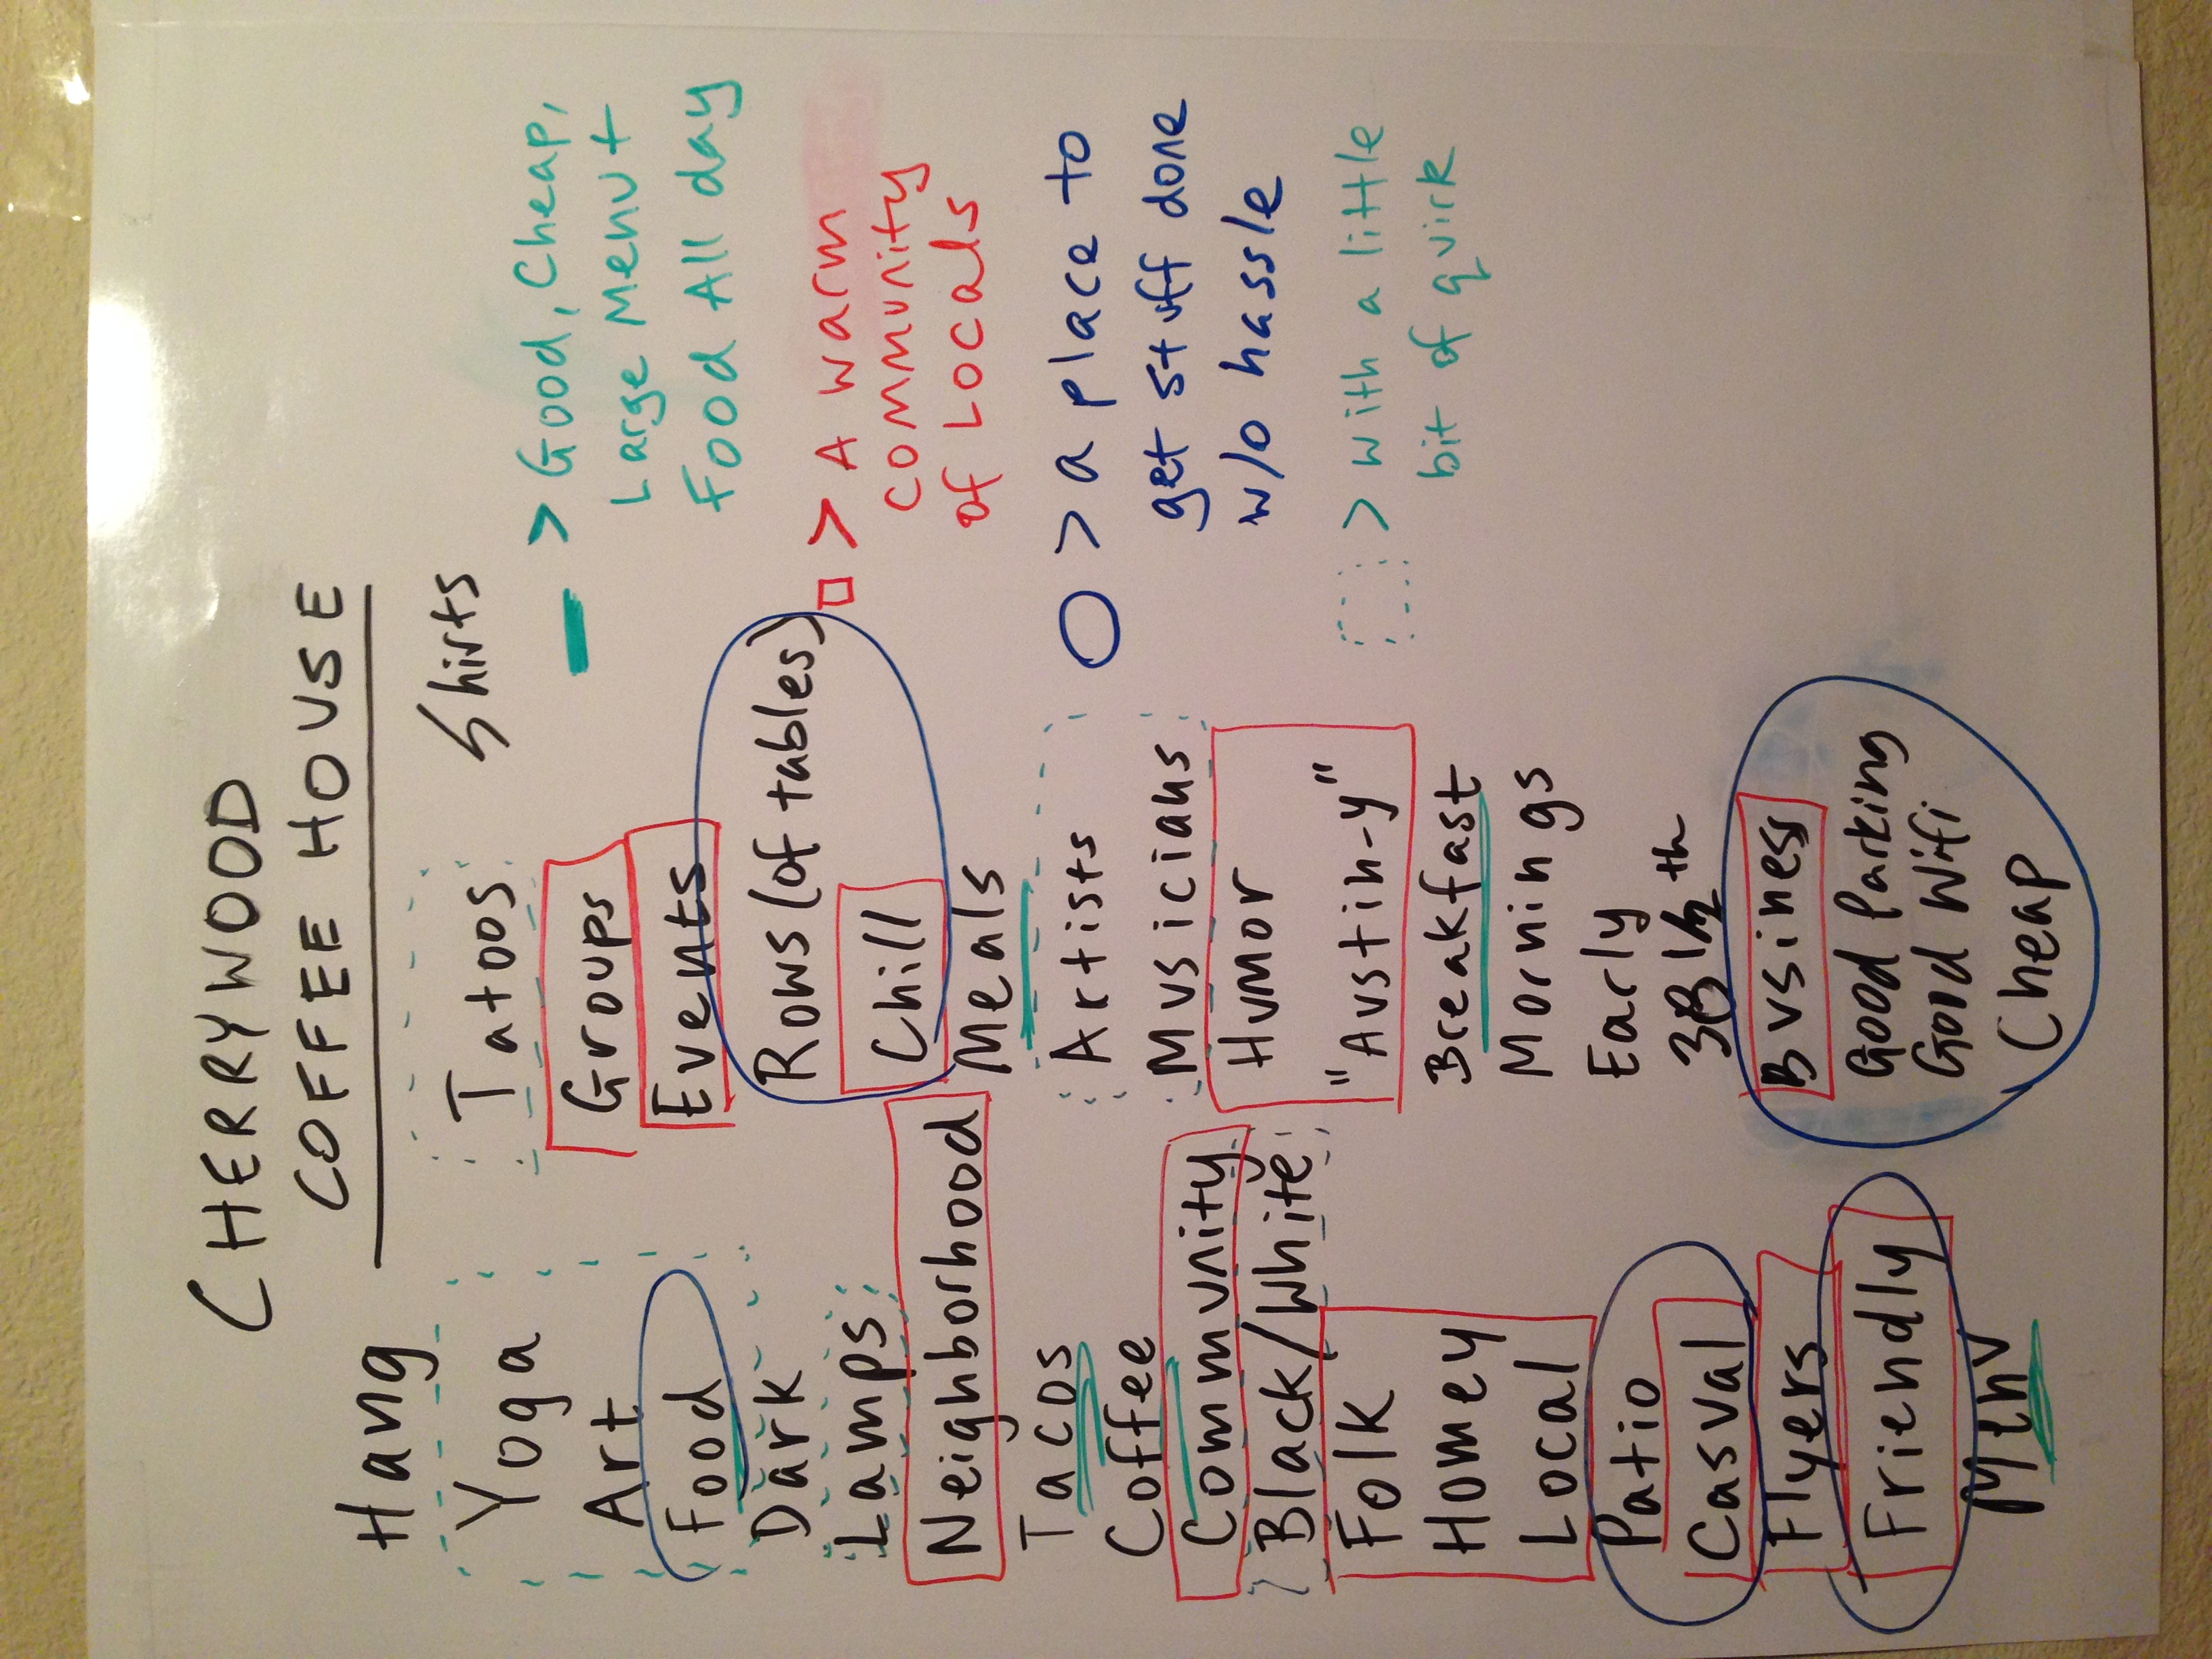 CHERRYWOOD
COFFEE HOUSE
Hang
Yoga
Art
Food
Dark
Lamps
Neighborhood
Tacos
Coffee
Community
Black/White
Folk
Homey
Local
Patio
Casual
Flyers
Friendly
Menu
Tatoos
Groups
Events
Rows (of tables)
Chill
Meals
Artists
Musicians
Humor
"Austin-y"
Breakfast
Mornings
Early
38 1/2 th
Business
Good Parking
Good Wifi
Cheap
Shirts
> Good, Cheap,
Large Menu +
Food All day
> A warm
community
of Locals
> a place to
get stuff done
w/o hassle
> with a little
bit of quirk